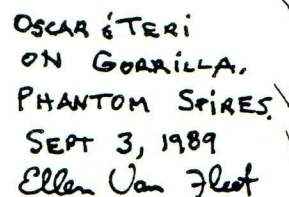 OSCAR & TERI
ON GORRILLA,
PHANTOM SPIRES.
SEPT 3, 1989
Ellen Van Fleet